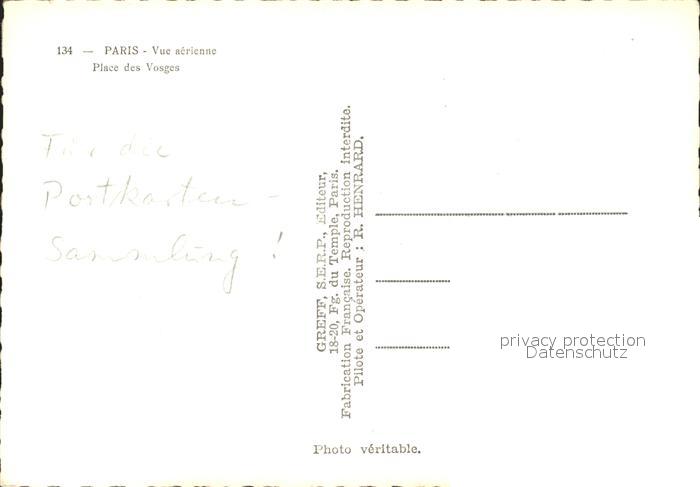 134 — PARIS - Vue aérienne
Place des Vosges
Für die
Postkarten-
sammlung!
GREFF, S.E.R.P., Editeur,
18-20, Fg. du Temple, Paris.
Fabrication Française. Reproduction interdite.
Pilote et Opérateur : R. HENRARD.
privacy protection
Datenschutz
Photo véritable.